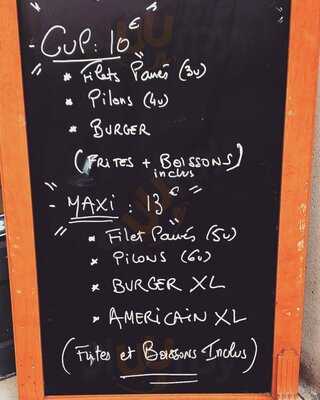 - CUP : 10 €
* Filets Panés (3u)
* Pilons (4u)
* BURGER
(FRITES + BOISSONS)
inclus
- MAXI : 13 €
* Filet Panés (5u)
* PILONS (6u)
* BURGER XL
* AMERICAIN XL
(Frites et Boissons Inclus)